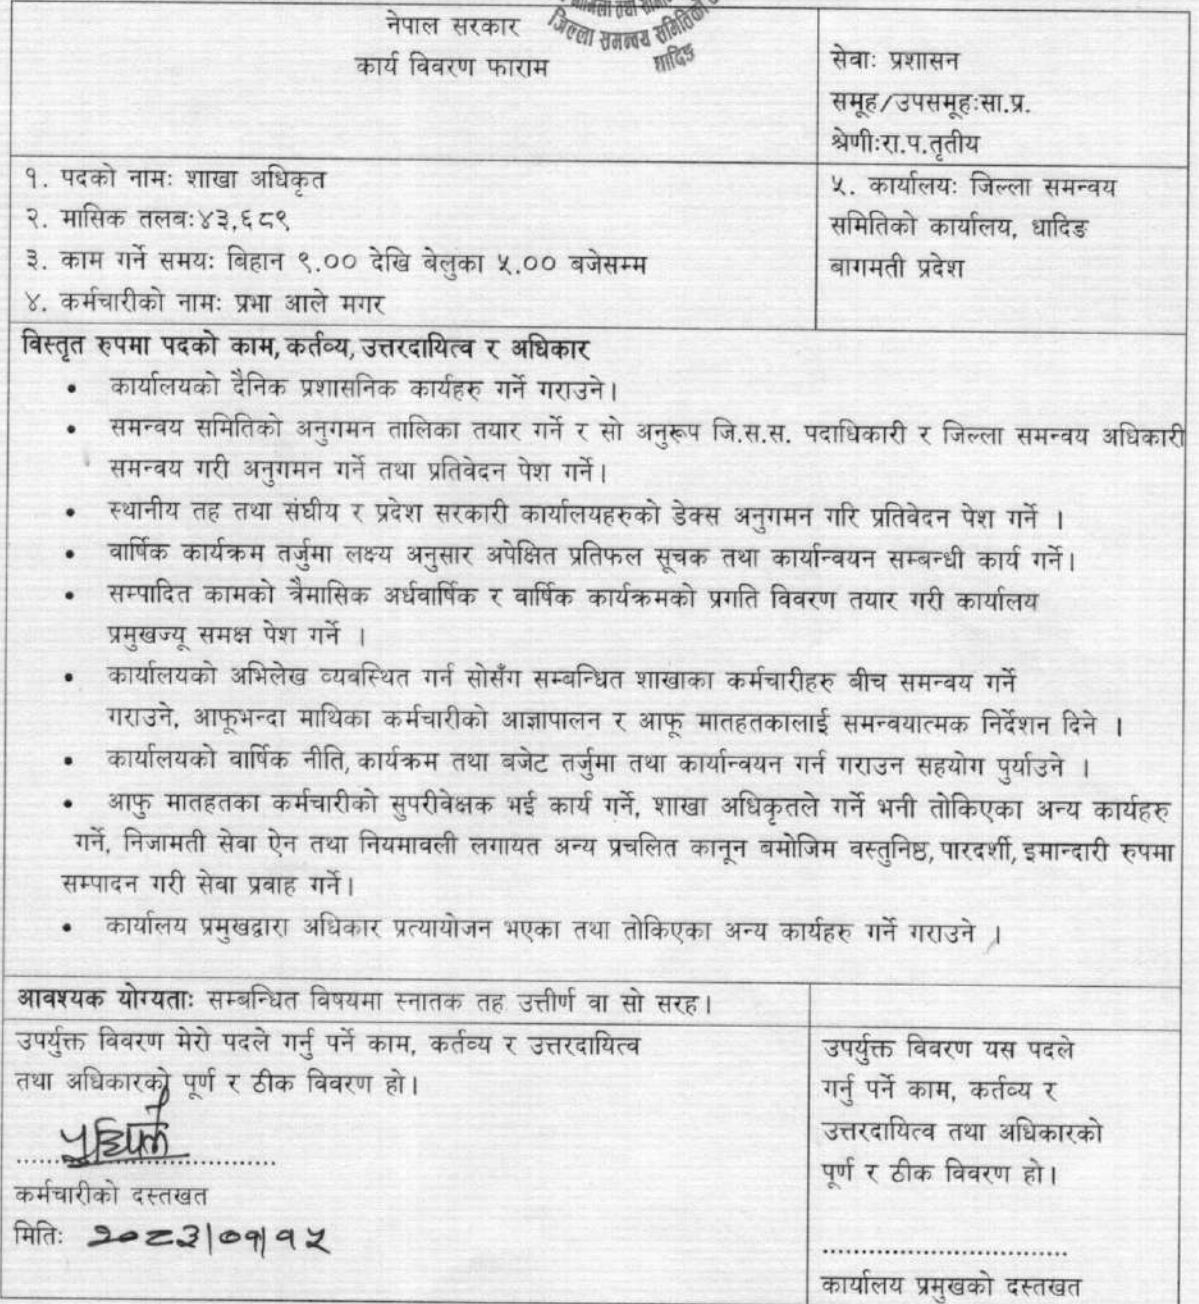 जिल्ला समन्वय समितिको
धादिङ
नेपाल सरकार
कार्य विवरण फाराम
सेवाः प्रशासन
समूह/उपसमूहःसा.प्र.
श्रेणीःरा.प.तृतीय
१. पदको नामः शाखा अधिकृत
२. मासिक तलबः४३,६८९
३. काम गर्ने समयः बिहान ९.०० देखि बेलुका ५.०० बजेसम्म
४. कर्मचारीको नामः प्रभा आले मगर
५. कार्यालयः जिल्ला समन्वय
समितिको कार्यालय, धादिङ
बागमती प्रदेश
विस्तृत रुपमा पदको काम,कर्तव्य,उत्तरदायित्व र अधिकार
• कार्यालयको दैनिक प्रशासनिक कार्यहरु गर्ने गराउने।
• समन्वय समितिको अनुगमन तालिका तयार गर्ने र सो अनुरूप जि.स.स. पदाधिकारी र जिल्ला समन्वय अधिकारी
समन्वय गरी अनुगमन गर्ने तथा प्रतिवेदन पेश गर्ने।
• स्थानीय तह तथा संघीय र प्रदेश सरकारी कार्यालयहरुको डेक्स अनुगमन गरि प्रतिवेदन पेश गर्ने ।
• वार्षिक कार्यक्रम तर्जुमा लक्ष्य अनुसार अपेक्षित प्रतिफल सूचक तथा कार्यान्वयन सम्बन्धी कार्य गर्ने।
• सम्पादित कामको त्रैमासिक अर्धवार्षिक र वार्षिक कार्यक्रमको प्रगति विवरण तयार गरी कार्यालय
प्रमुखज्यू समक्ष पेश गर्ने ।
• कार्यालयको अभिलेख व्यवस्थित गर्न सोसँग सम्बन्धित शाखाका कर्मचारीहरु बीच समन्वय गर्ने
गराउने, आफूभन्दा माथिका कर्मचारीको आज्ञापालन र आफू मातहतकालाई समन्वयात्मक निर्देशन दिने ।
• कार्यालयको वार्षिक नीति,कार्यक्रम तथा बजेट तर्जुमा तथा कार्यान्वयन गर्न गराउन सहयोग पुर्याउने ।
• आफु मातहतका कर्मचारीको सुपरीवेक्षक भई कार्य गर्ने, शाखा अधिकृतले गर्ने भनी तोकिएका अन्य कार्यहरु
गर्ने, निजामती सेवा ऐन तथा नियमावली लगायत अन्य प्रचलित कानून बमोजिम वस्तुनिष्ठ,पारदर्शी,इमान्दारी रुपमा
सम्पादन गरी सेवा प्रवाह गर्ने।
• कार्यालय प्रमुखद्वारा अधिकार प्रत्यायोजन भएका तथा तोकिएका अन्य कार्यहरु गर्ने गराउने ।
आवश्यक योग्यताः सम्बन्धित विषयमा स्नातक तह उत्तीर्ण वा सो सरह।
उपर्युक्त विवरण मेरो पदले गर्नु पर्ने काम, कर्तव्य र उत्तरदायित्व
तथा अधिकारको पूर्ण र ठीक विवरण हो।
..............................
कर्मचारीको दस्तखत
मितिः २०८३|०१|१५
उपर्युक्त विवरण यस पदले
गर्नु पर्ने काम, कर्तव्य र
उत्तरदायित्व तथा अधिकारको
पूर्ण र ठीक विवरण हो।
................................
कार्यालय प्रमुखको दस्तखत